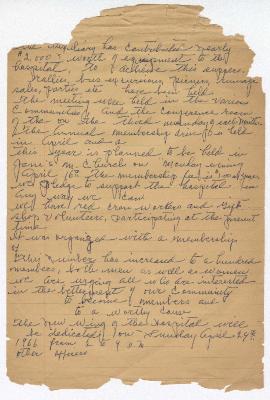 The auxiliary has contributed nearly
$2,000's worth of equipment to the
hospital. To achieve this support
rallies, bus excursions, picnics, rummage
sales, parties etc have been held
The meeting were held in the various
Communities, and the Conference room
or the third monday of each month.
The annual membership drive is held
in April and
this year is planned to be held in
M. E. Church on Monday evening
April the membership fee is a year
we pledge to support the hospital in
any way we can
We have red cross workers and gift
shop volunteers, participating at the present
time.
It was organized with a membership
of
This number has increased to a hundred
members, both men as well as women
we are urging all who are interested
in the betterment of our Community
to become members and
to a worthy cause
The new wing of the Hospital will
be dedicated on Sunday April 24th
1966 from 2 to 4 P.M.
other